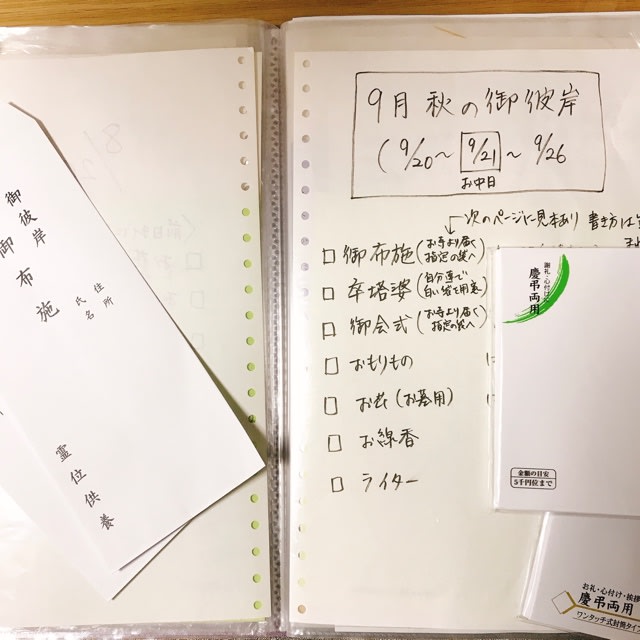 御彼岸
御布施
住所
氏名
霊位供養
9月 秋の御彼岸
(9/20〜9/21〜9/26
お中日
次のページに見本あり 書き方は
御布施(お寺より届く指定の袋へ
卒塔婆(自分達で白い袋を用意)
御会式(お寺より届く指定の袋へ
おもりもの
お花(お墓用)
お線香
ライター
謝礼・心付けに
慶弔両用
金額の目安
5千円位まで
お礼・心付け・挨拶
慶弔両用
ワンタッチ式封筒タイプ